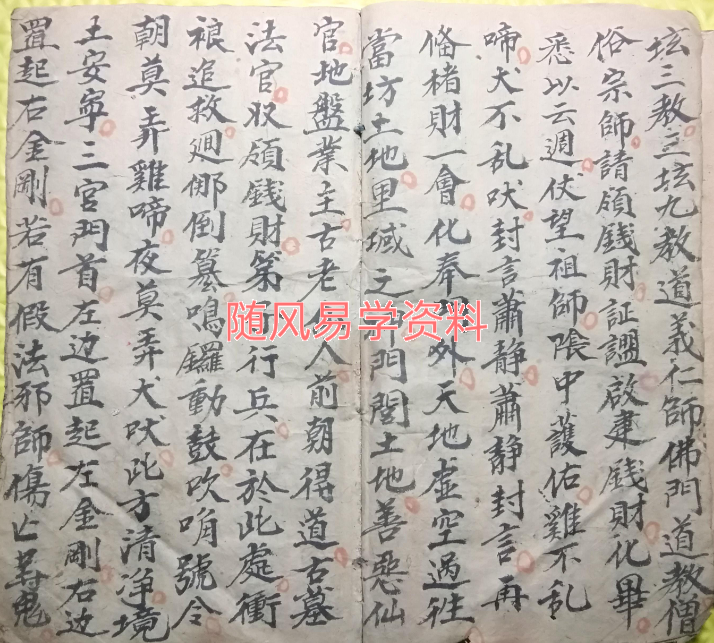 坛三教三坛九教道義仁師佛門道教僧
俗宗師請領錢財証盟啟建錢財化畢
悉以云週伏望祖師隈中護佑雞不乱
啼犬不乱吠封言蕭静蕭静封言再
俻楮財一會化奉 外天地虚空過往
當坊土地里域之神門閭土地善惡仙
官地盤業主古老 人前朝得道古墓
法官收領錢財第 行兵在於此處衝
裉追救廽倒鳴鑼動鼓吹嗩號令
朝莫弄雞啼夜莫弄犬吠此方清净境
土安寧三官門首左边置起左金剛右边
置起右金剛若有假法邪師傷亡鬼
随风易学资料